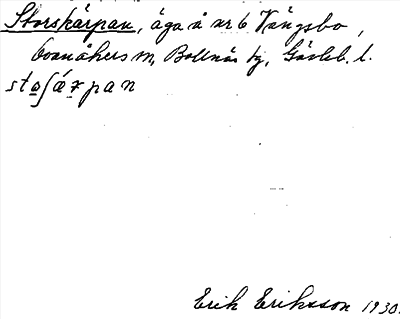 Storskärpan, äga å nr 6 Vängsbo,
Ovanåkers sn, Bollnäs tg, Gävleb. l.
stoʃärpan
Erik Eriksson 1930.